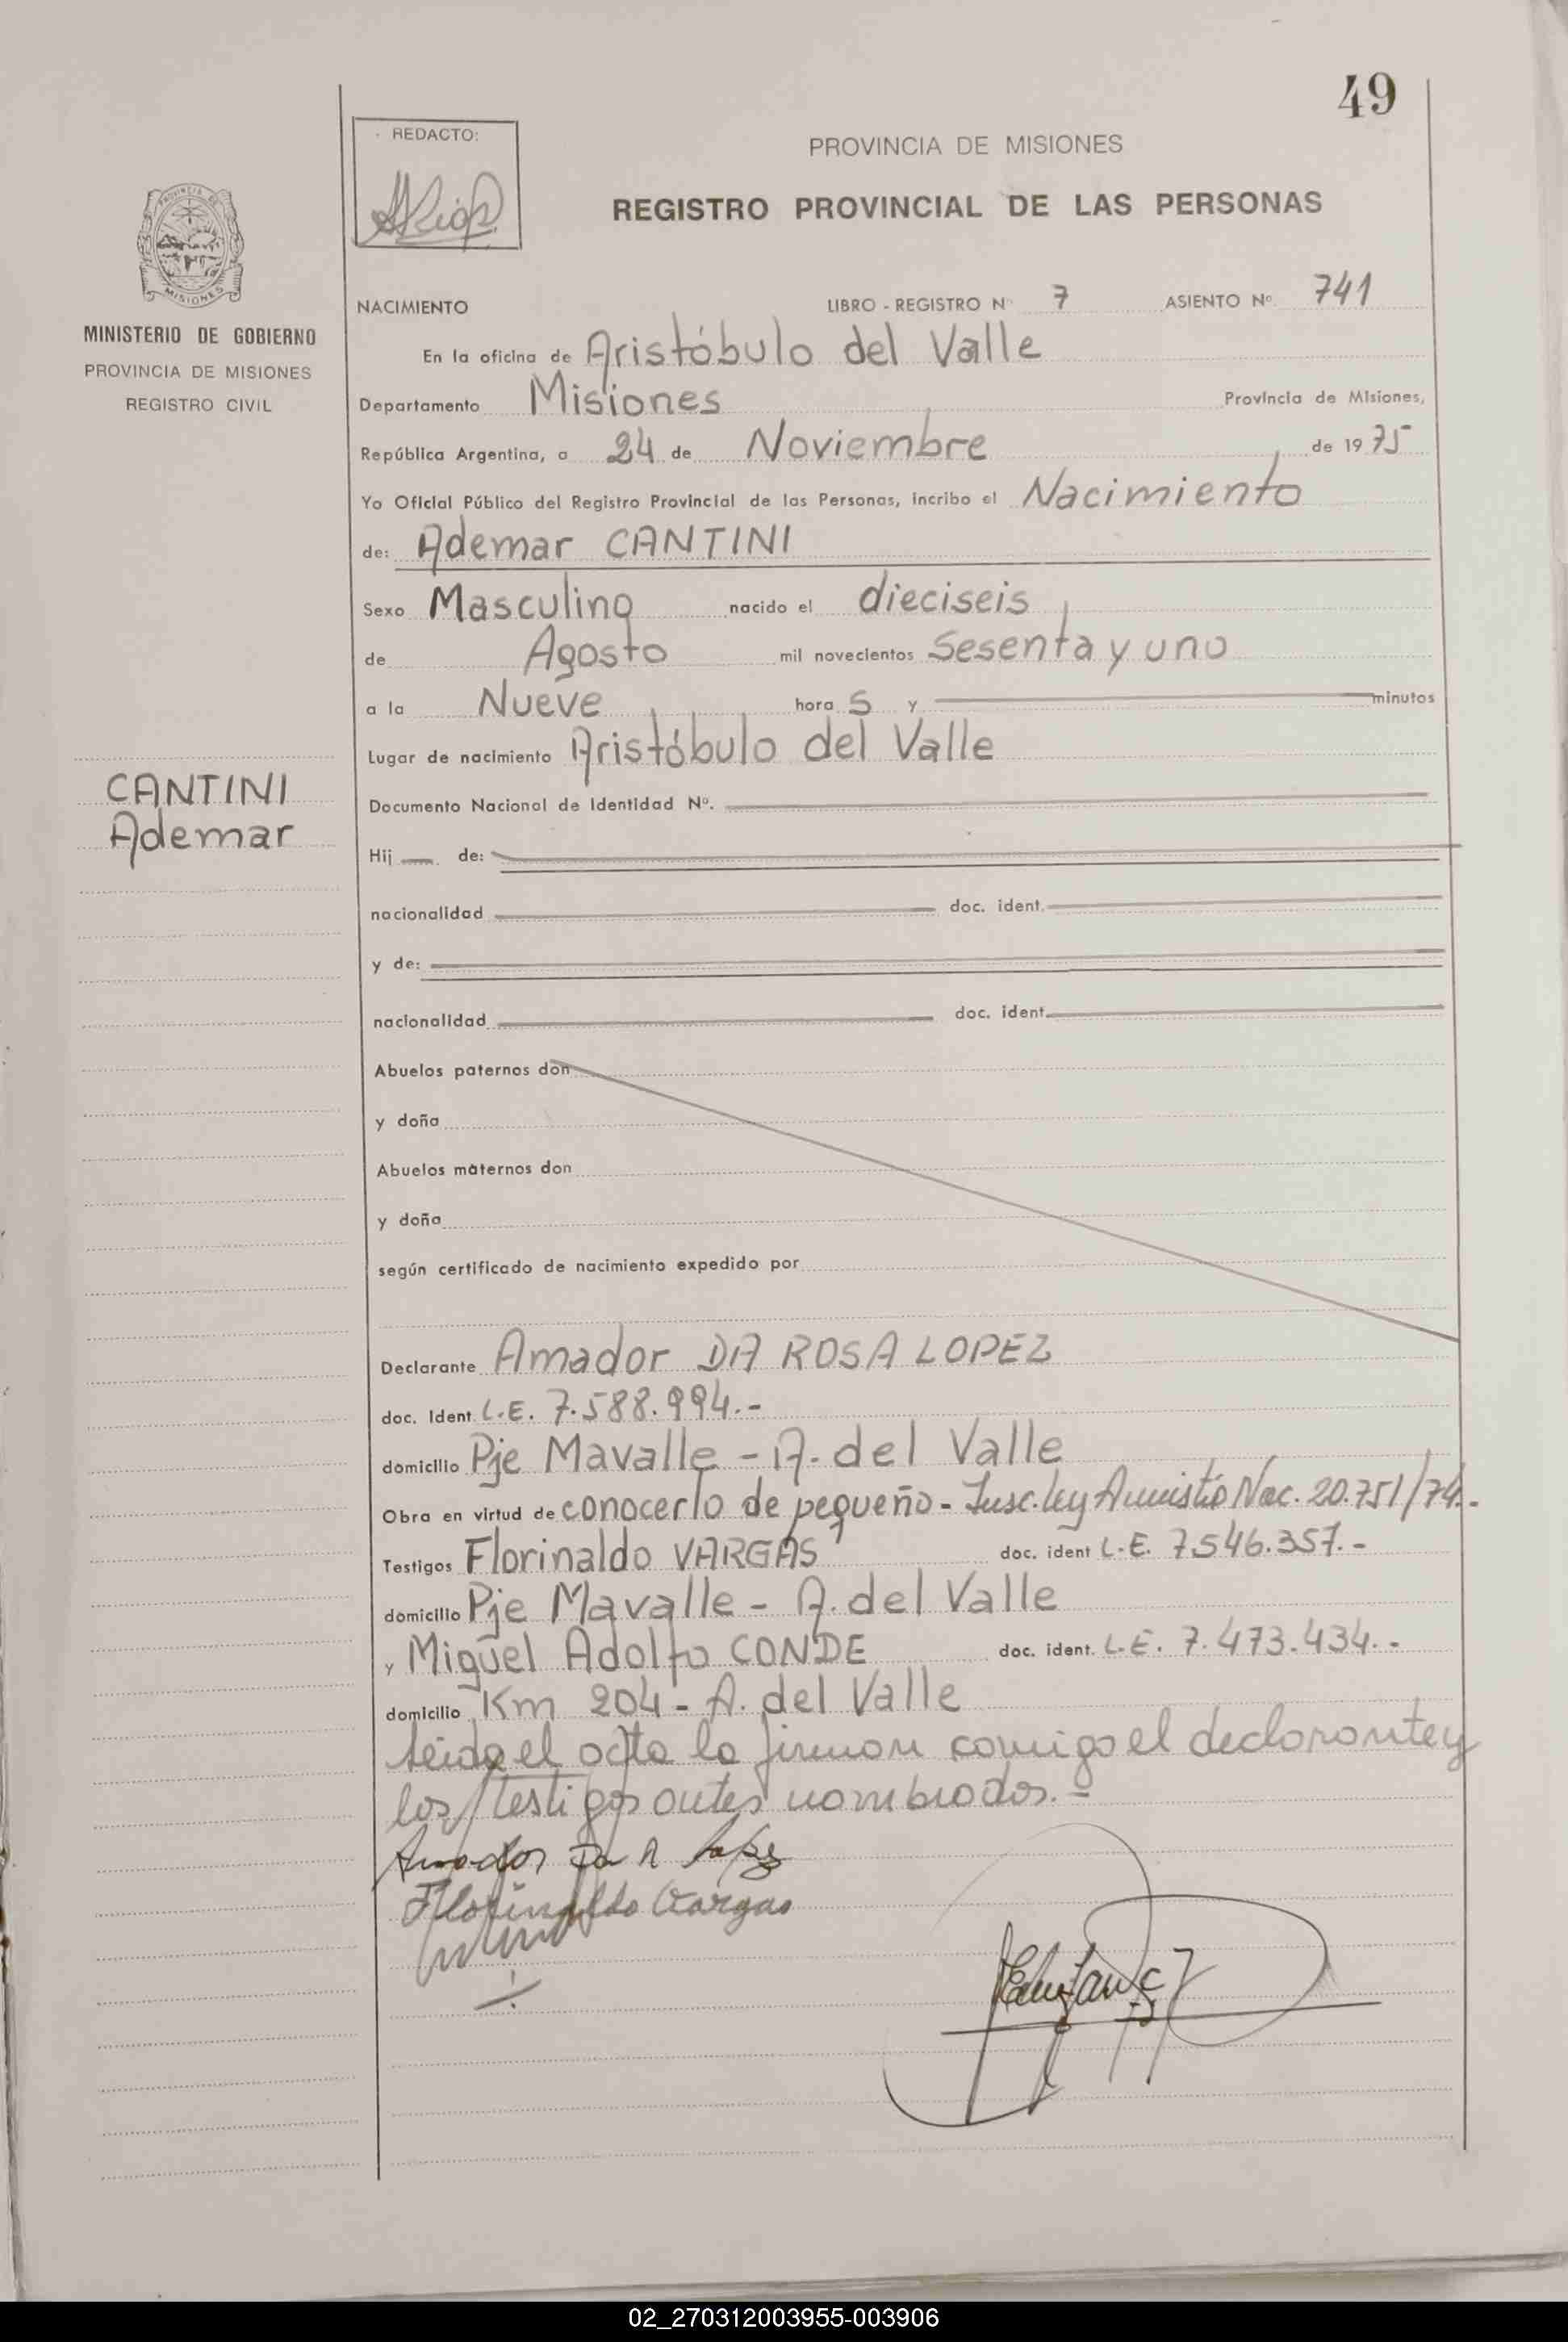 49
REDACTO:
PROVINCIA DE MISIONES
REGISTRO PROVINCIAL DE LAS PERSONAS
PROVINCIA DE
MISIONES
MINISTERIO DE GOBIERNO
PROVINCIA DE MISIONES
REGISTRO CIVIL
NACIMIENTO LIBRO - REGISTRO Nº 7 ASIENTO Nº 741
En la oficina de Aristóbulo del Valle
Departamento Misiones Provincia de Misiones,
República Argentina, a 24 de Noviembre de 1975
Yo Oficial Público del Registro Provincial de las Personas, incribo el Nacimiento
de: Ademar CANTINI
Sexo Masculino nacido el dieciseis
de Agosto mil novecientos Sesenta y uno
a la Nueve hora S y minutos
Lugar de nacimiento Aristóbulo del Valle
CANTINI
Ademar
Documento Nacional de Identidad Nº.
Hij de:
nacionalidad doc. ident.
y de:
nacionalidad doc. ident.
Abuelos paternos don
y doña
Abuelos maternos don
y doña
según certificado de nacimiento expedido por
Declarante Amador DA ROSA LOPEZ
doc. Ident. L.E. 7.588.994.-
domicilio Pje Mavalle - A. del Valle
Obra en virtud de conocerlo de pequeño - Insc. ley Amnistía Nac. 20.751/74.-
Testigos Florinaldo VARGAS doc. ident L.E. 7.546.357.-
domicilio Pje Mavalle - A. del Valle
y Miguel Adolfo CONDE doc. ident. L.E. 7.473.434.-
domicilio Km 204 - A. del Valle
Leida el acta la firman comigo el declarante y
los testigos antes nombrados.-
Amador Da R Lopez
Florinaldo Vargas
02_270312003955-003906